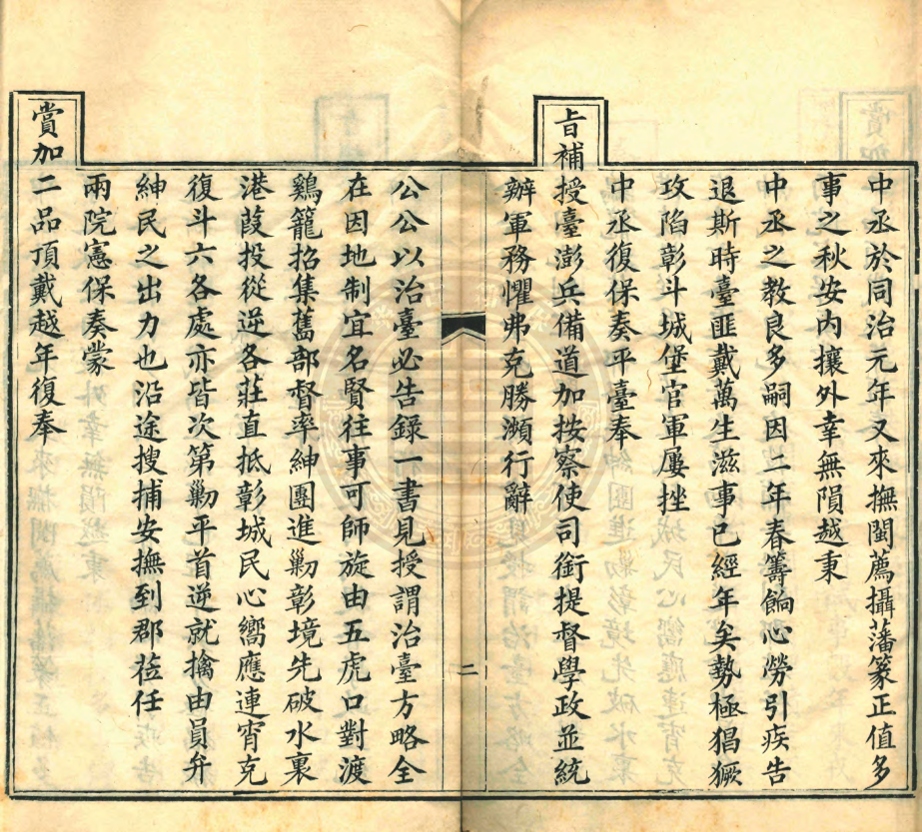 中丞於同治元年又來撫閩薦攝藩篆正值多
事之秋安內攘外幸無隕越秉
中丞之教良多嗣因二年春籌餉心勞引疾告
退斯時臺匪戴萬生滋事已經年矣勢極猖獗
攻陷彰斗城堡官軍屢挫
中丞復保奏平臺奉
旨補授臺澎兵備道加按察使司銜提督學政並統
辦軍務懼弗克勝瀕行辭
二
公公以治臺必告錄一書見授謂治臺方略全
在因地制宜名賢往事可師旋由五虎口對渡
鷄籠招集舊部督率紳團進勦彰境先破水裏
港葭投從逆各莊直抵彰城民心嚮應連宵克
復斗六各處亦皆次第勦平首逆就擒由員弁
紳民之出力也沿途搜捕安撫到郡莅任
兩院憲保奏蒙
賞加二品頂戴越年復奉